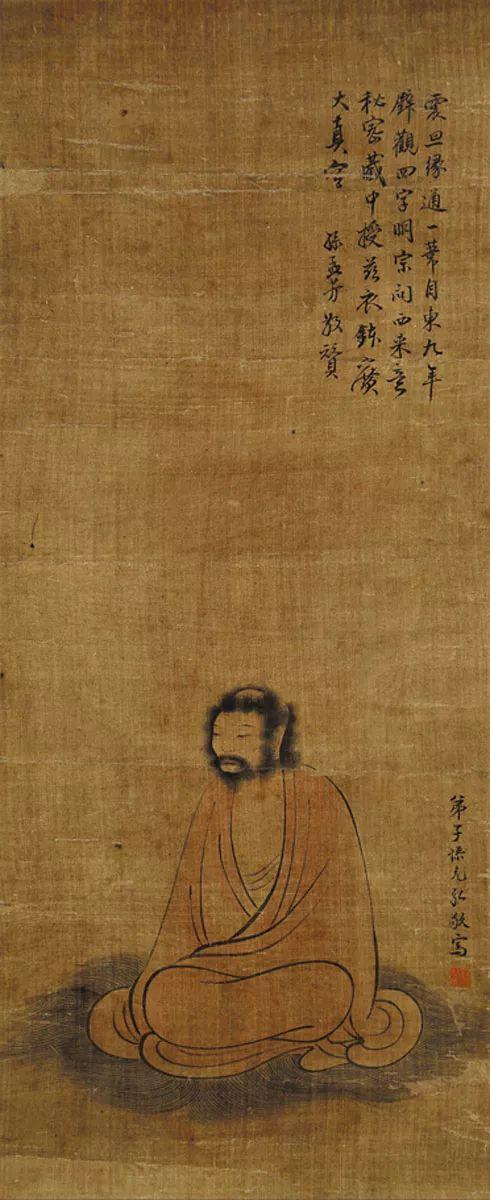 震旦緣通一葦自東九年
壁觀四字明宗問西來意
秘密藏中授茲衣鉢廣
大真空 孫孟芳敬贊
弟子孫克弘敬寫